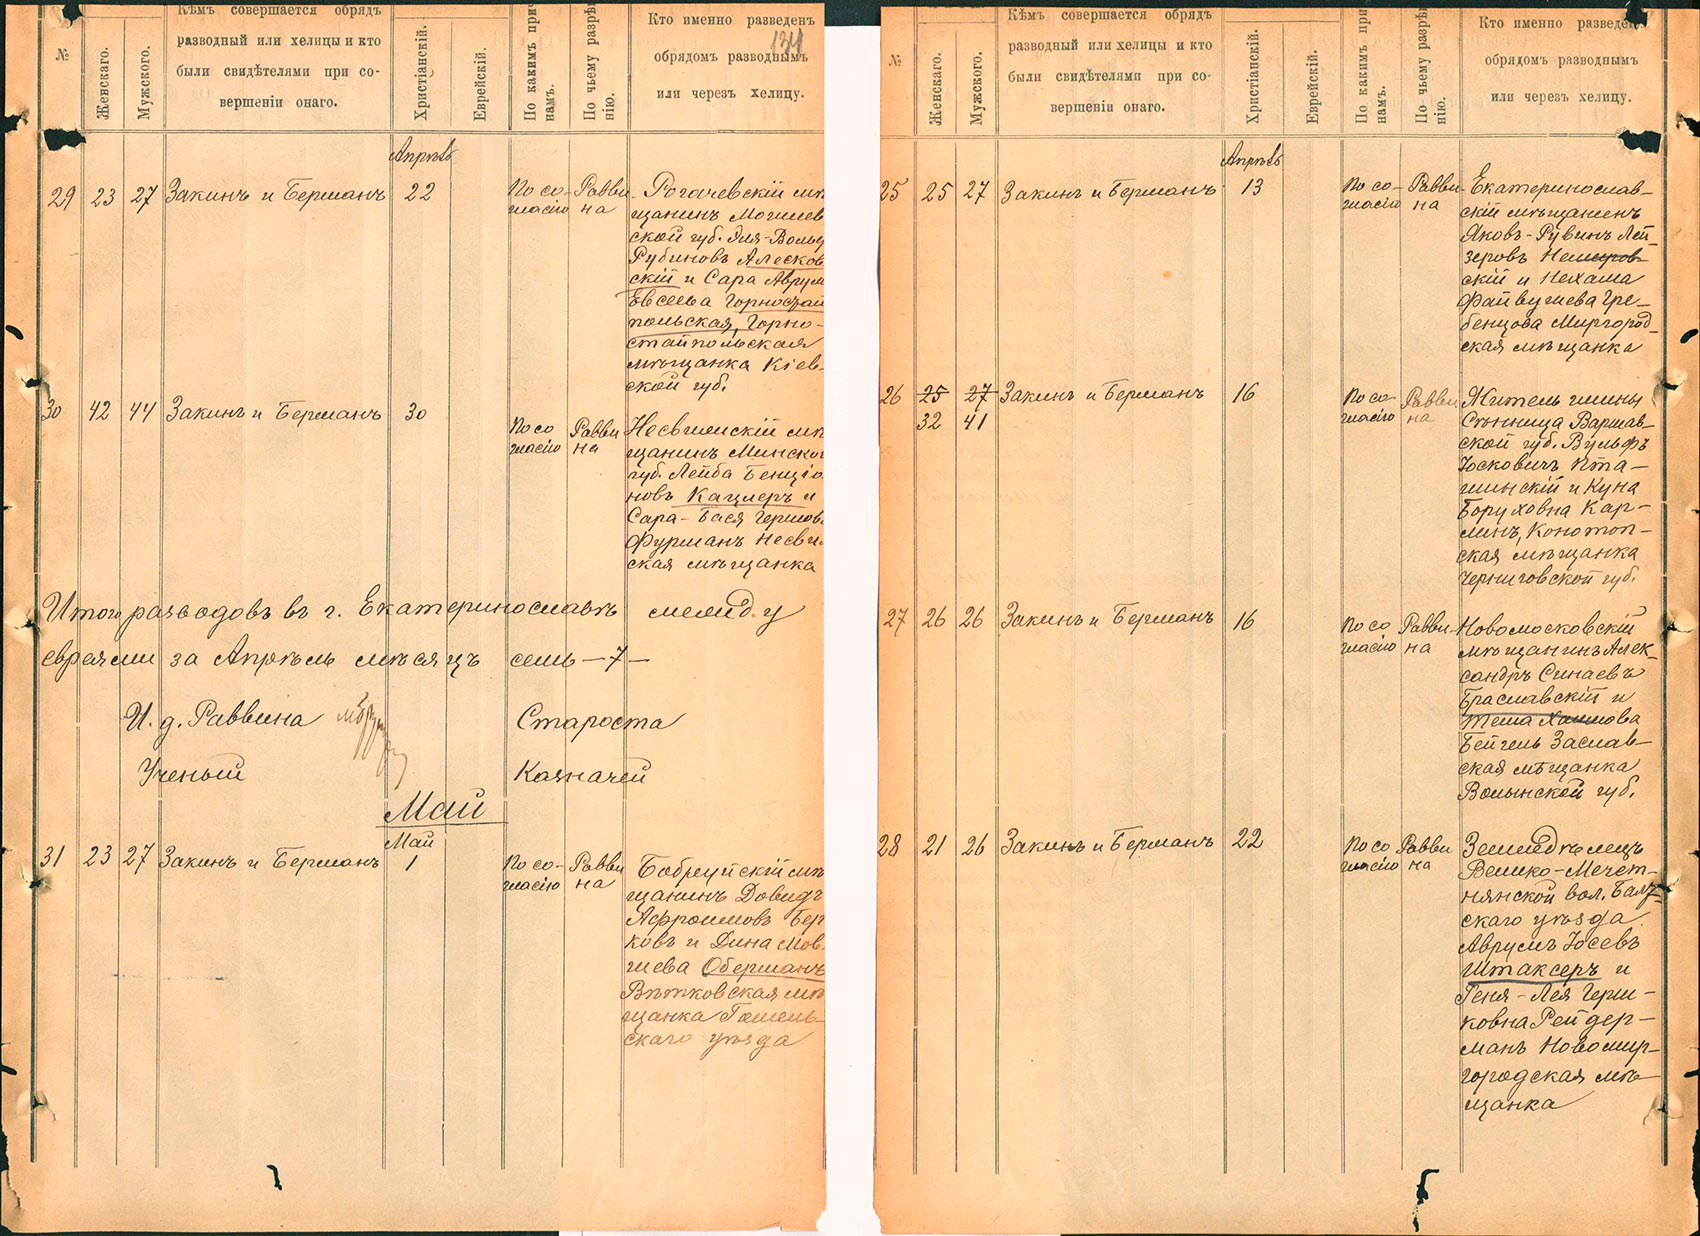 Кѣмъ совершается обрядъ
разводный или хелицы и кто
были свидѣтелями при со-
вершеніи онаго.
№
Женскаго.
Мужского.
Христіанскій.
Еврейскій.
По какимъ при
намъ.
По чьему разрѣ
нію.
Кто именно разведенъ
обрядомъ разводнымъ
или черезъ хелицу.
134
Апрѣль
29 23 27 Закинъ и Берманъ 22
По со-
гласію
Равви
на
Рогачевскій мѣ
щанинъ Могилев
ской губ. Эля-Вольф
Рубиновъ Алесков
скій и Сара Аврум
Евсеева Горностай
польская, Горно-
стайпольская
мѣщанка Кіев-
ской губ.
30 42 44 Закинъ и Берманъ 30
По со
гласію
Равви
на
Несвижскій мѣ
щанинъ Минской
губ. Лейба Бенціо
новъ Кацлеръ и
Сара-Бася Гершов
Фурманъ Несви
ская мѣщанка
Итого разводовъ въ г. Екатеринославѣ между
евреями за Апрѣль мѣсяцъ семь - 7 -
И. д. Раввина Староста
Ученый Казначей
Май
Май
31 23 27 Закинъ и Берманъ 1
По со-
гласію
Равви
на
Бобруйскій мѣ
щанинъ Довидъ
Афроимовъ Бер
ковъ и Дина Мов
шева Оберманъ
Вѣтковская мѣ
щанка Гомель-
скаго уѣзда
Кѣмъ совершается обрядъ
разводный или хелицы и кто
были свидѣтелями при со-
вершеніи онаго.
№
Женскаго.
Мужского.
Христіанскій.
Еврейскій.
По какимъ при
намъ.
По чьему разрѣ
нію.
Кто именно разведен
обрядомъ разводнымъ
или черезъ хелицу.
Апрѣль
25 25 27 Закинъ и Берманъ 13
По со-
гласію
Равви-
на
Екатеринослав-
скій мѣщанинъ
Яковъ-Рувинъ Лей-
зеровъ Немиров-
скій и Нехама
Файвушева Гре-
бенцова Миргород-
ская мѣщанка
26 25 27 Закинъ и Берманъ 16
32 41
По со-
гласію
Равви
на
Житель гмины
Сѣнница Варшав-
ской губ. Вульфъ
Іосковичъ Пта-
шинскій и Куна
Боруховна Кар-
линъ, Конотоп-
ская мѣщанка
Черниговской губ.
27 26 26 Закинъ и Берманъ 16
По со
гласію
Равви-
на
Новомосковскій
мѣщанинъ Алек-
сандръ Синаевъ
Браславскій и
Тема Хаимова
Бейгель Заслав-
ская мѣщанка
Волынской губ.
28 21 26 Закинъ и Берманъ 22
По со
гласію
Равви
на
Земледѣлецъ
Велико-Мечет-
нянской вол. Балт-
скаго уѣзда
Аврумъ Іосевъ
Штаксеръ и
Геня-Лея Герш-
ковна Рейдер-
манъ Новомир-
городская мѣ-
щанка